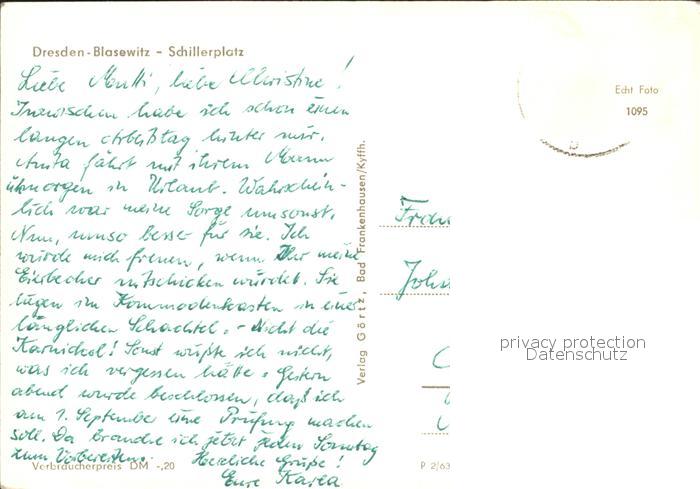 Dresden-Blasewitz - Schillerplatz
Liebe Mutti, liebe Christine!
Inzwischen habe ich schon einen
langen Arbeitstag hinter mir.
Anita fährt mit ihrem Mann
übmorgen in Urlaub. Wahrschein-
lich war meine Sorge umsonst.
Nun, umso besser für sie. Ich
würde mich freuen, wenn Ihr meine
Eierbecher mitschicken würdet. Sie
liegen im Kommodenkasten in einer
länglichen Schachtel. - Nicht die
Karnickel! Sonst wüßte ich nicht,
was ich vergessen hätte. Gestern
abend wurde beschlossen, daß ich
am 1. September eine Prüfung machen
soll. Da brauche ich jetzt jeden Sonntag
zum Vorbereiten. Herzliche Grüße!
Eure Karla
Verbraucherpreis DM -,20
Verlag Görtz, Bad Frankenhausen/Kyffh.
Echt Foto
1095
Frau
Joha
P 2/63
privacy protection
Datenschutz